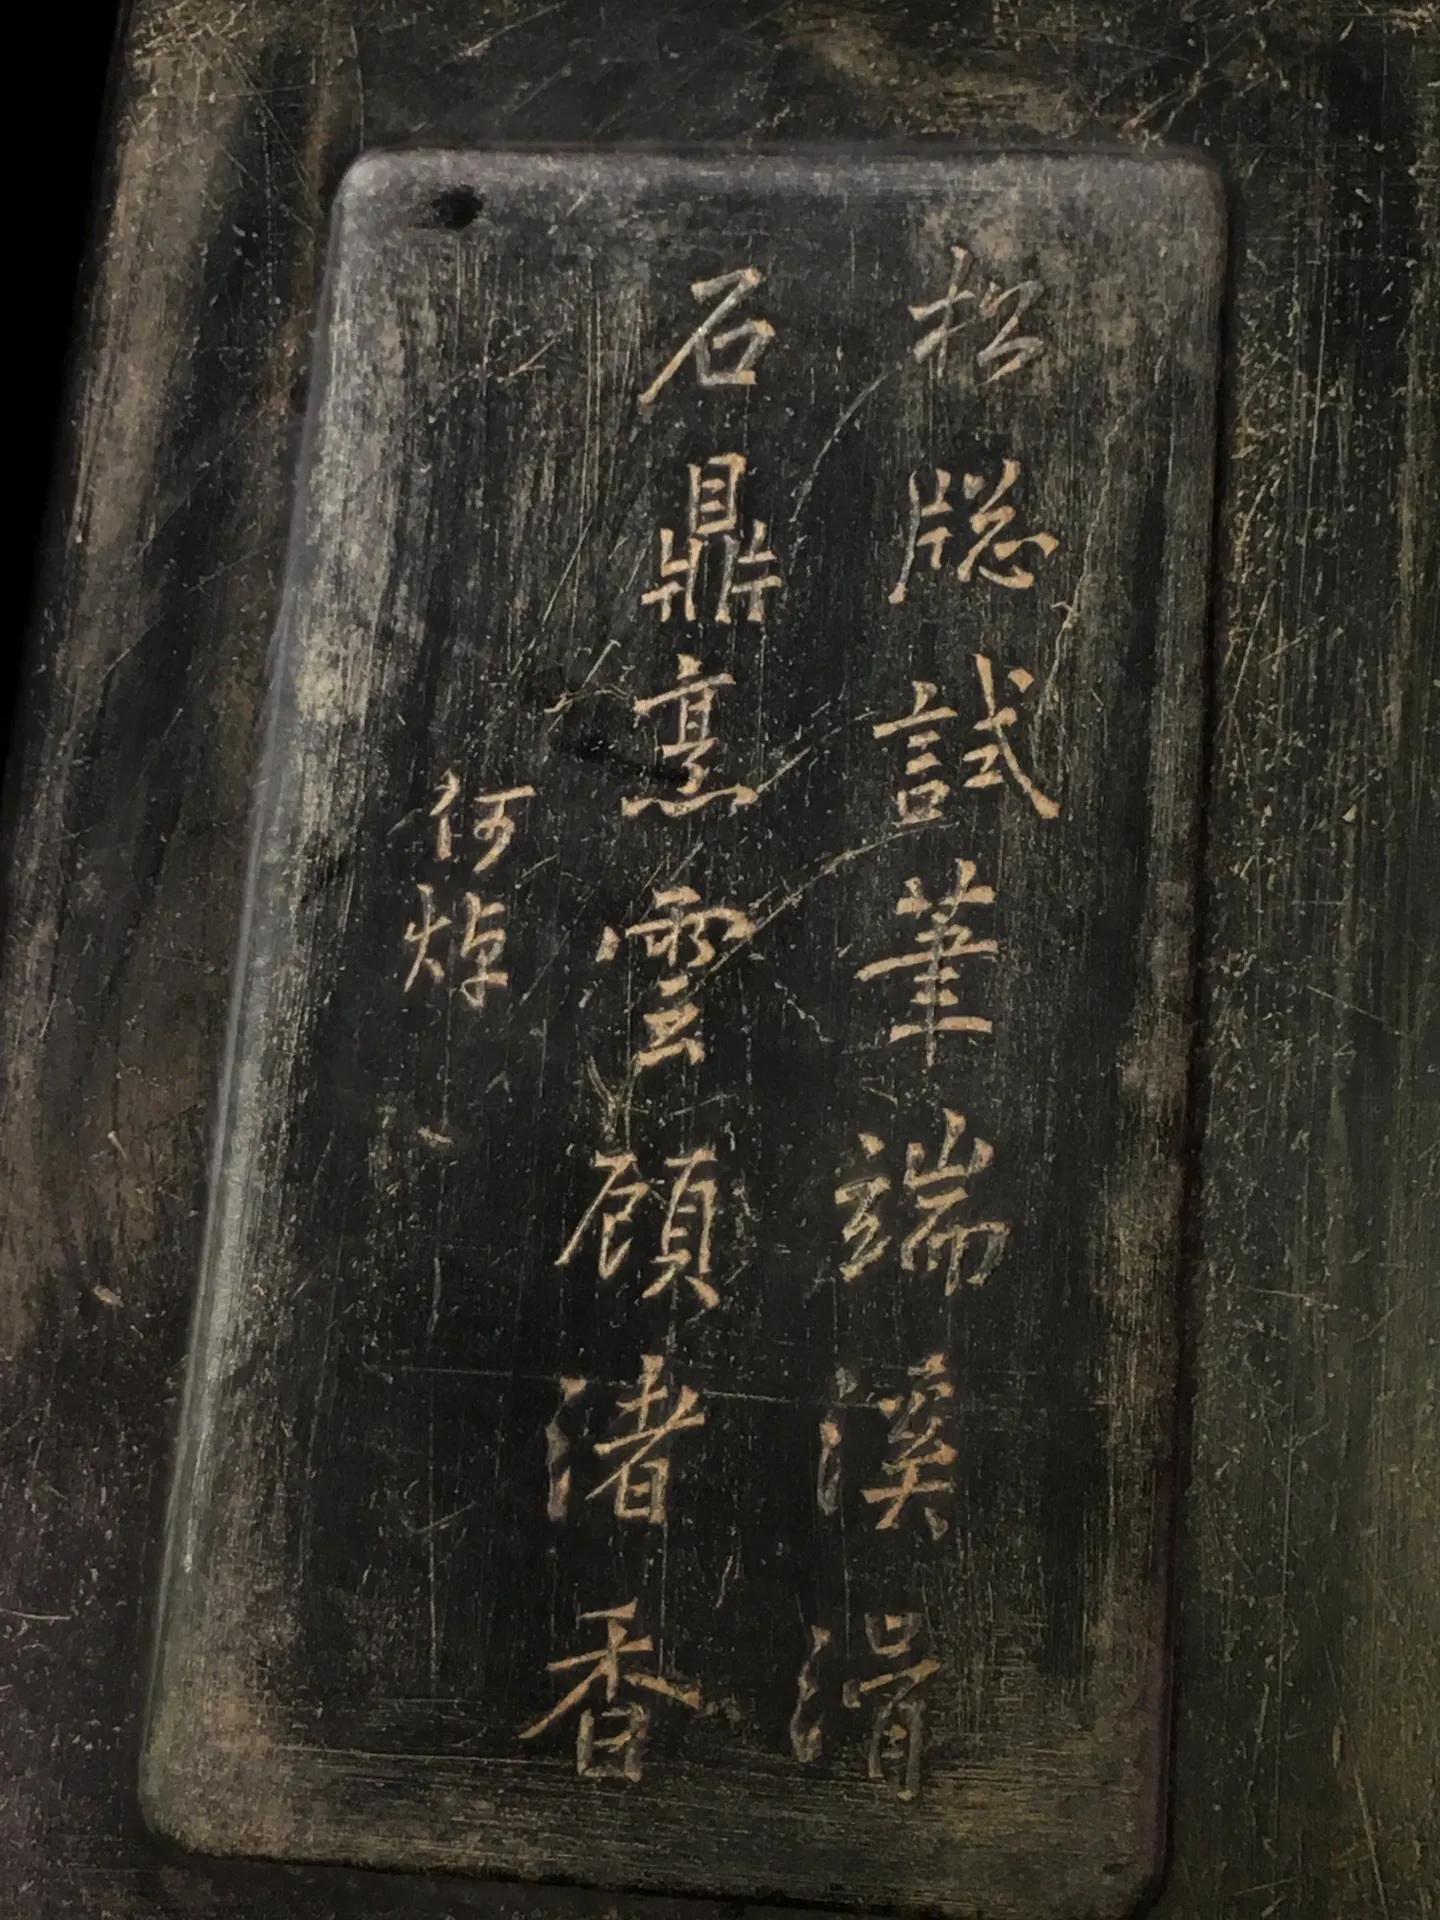 松牕試筆端溪滑
石鼎烹雲顧渚香
何焯